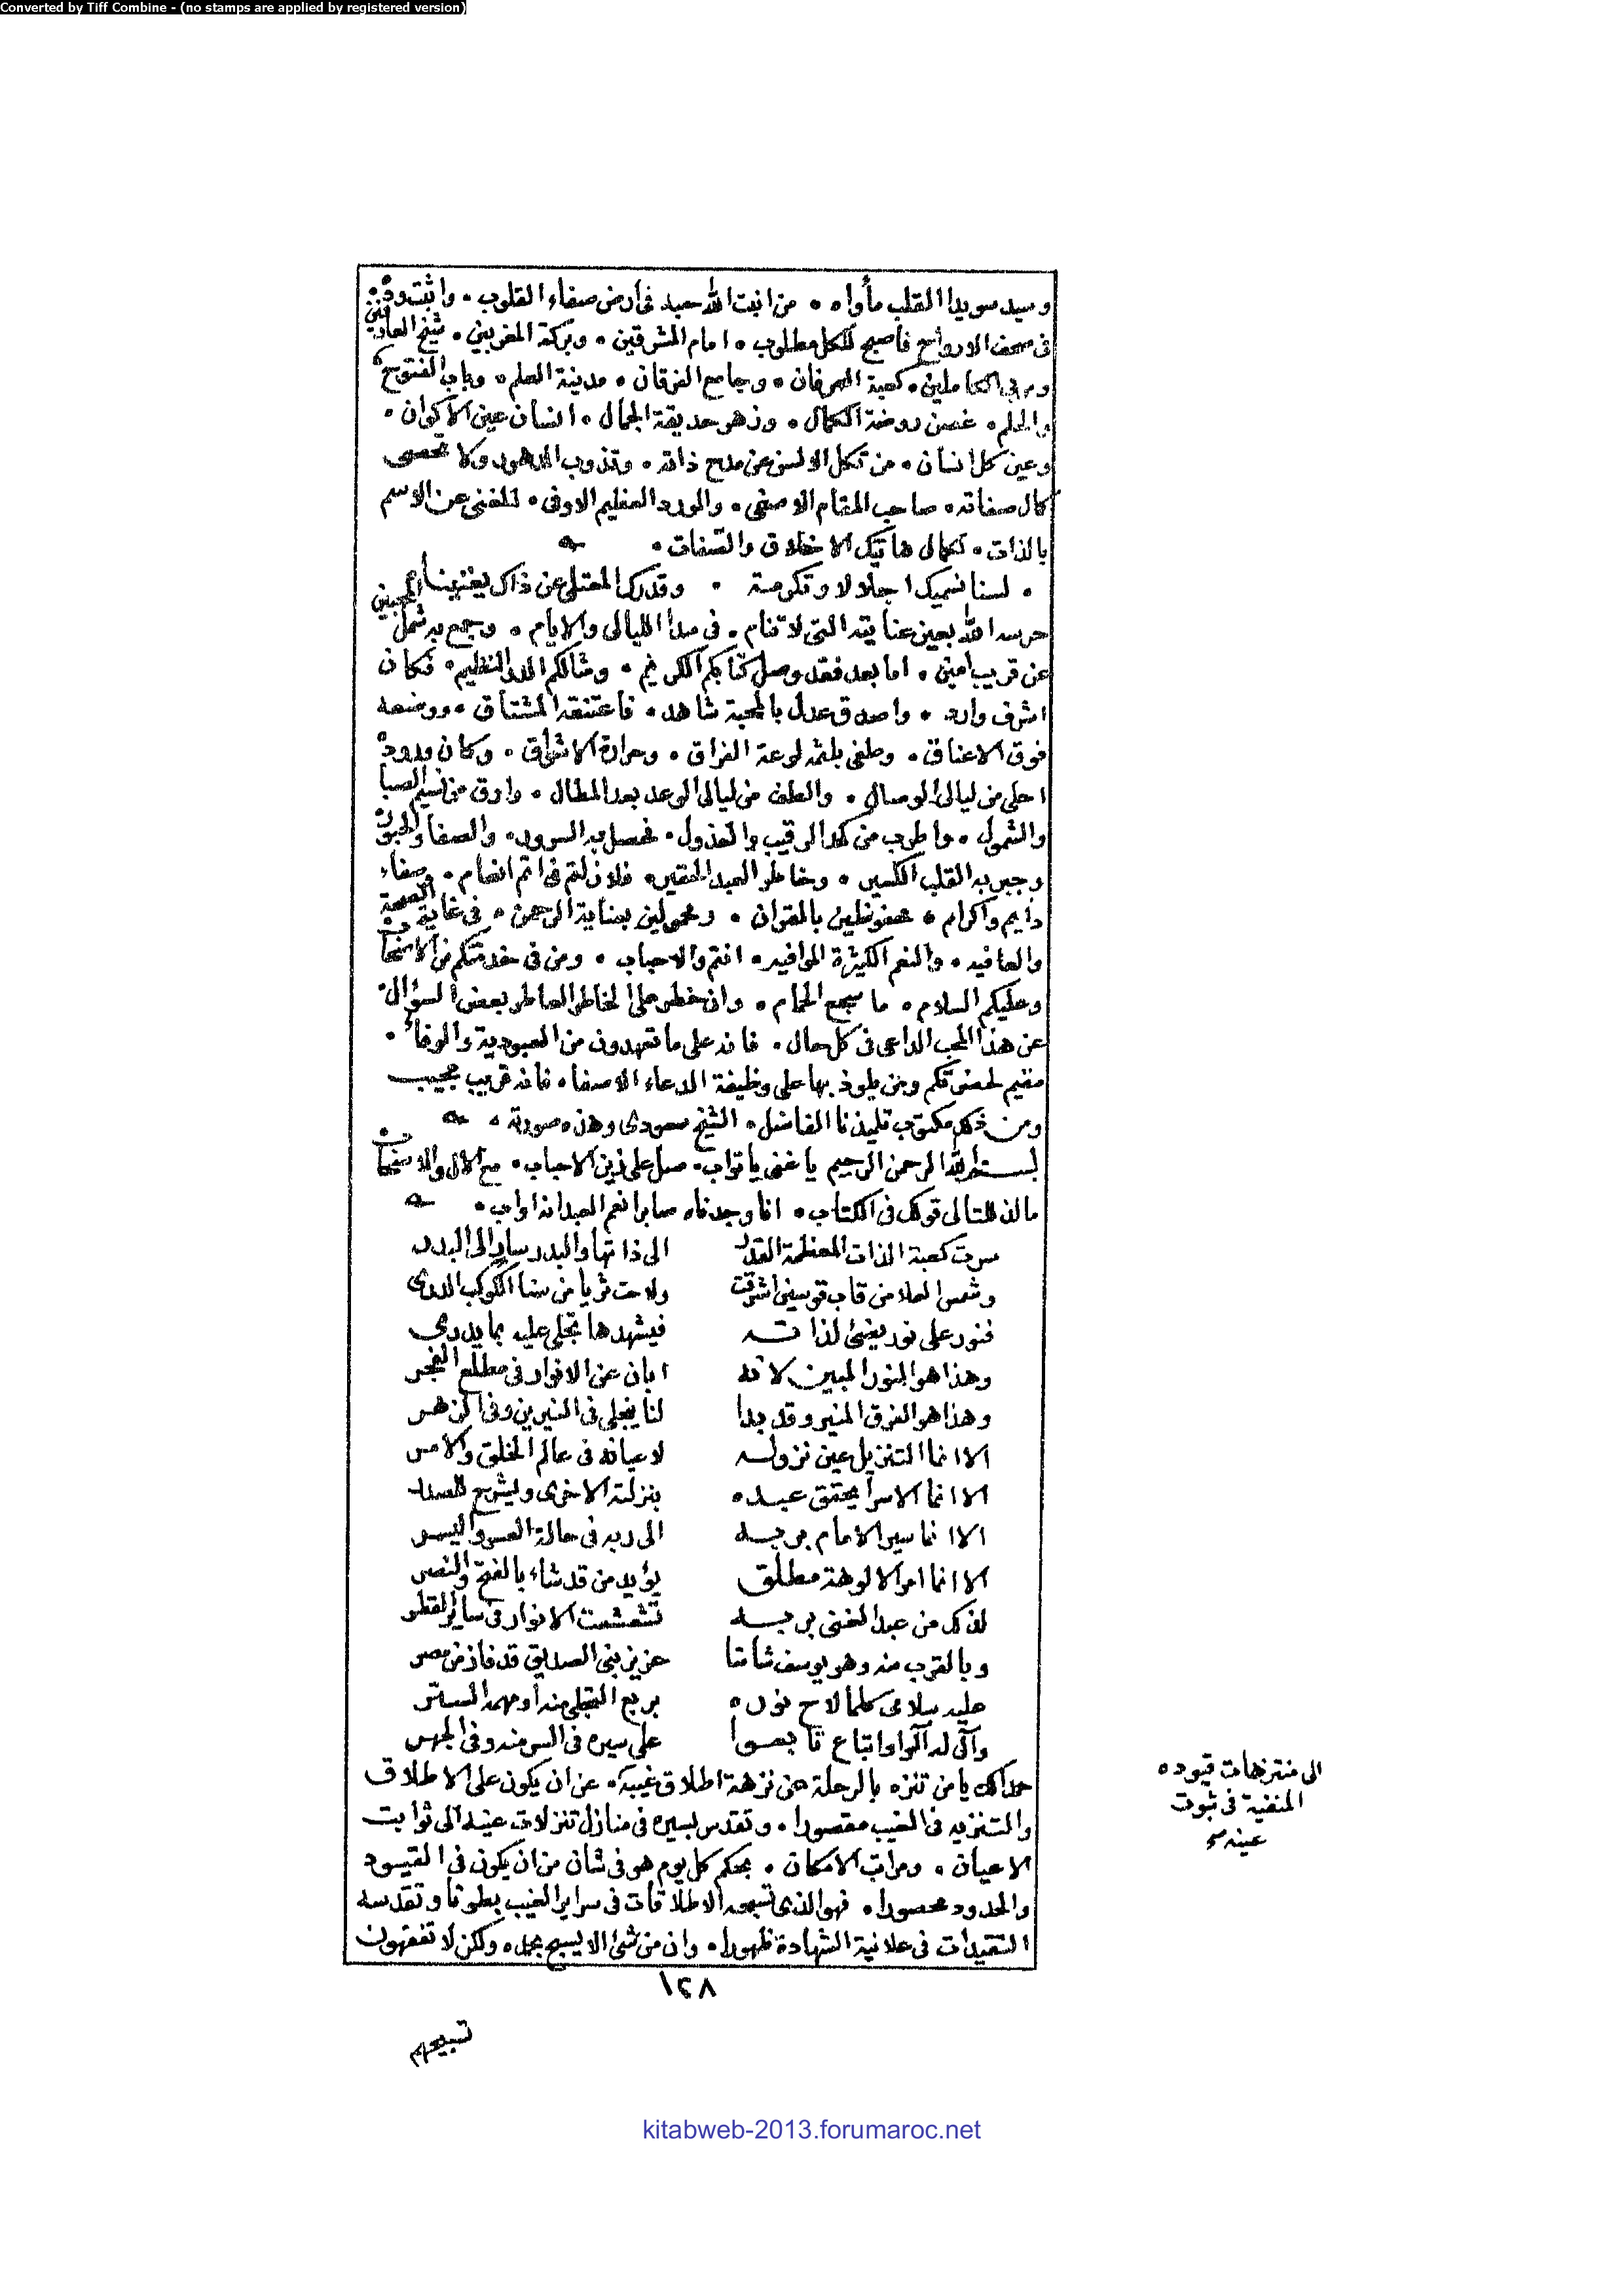 Converted by Tiff Combine - (no stamps are applied by registered version)
وسيد سويدا القلب مأواه • من انبت الله حبه فى ارض صفاء القلوب • واثبت وده
فى صحف الارواح فاصبح للكل مطلوب • امام المشرقين • وبركة المغربين • شيخ العارفين
ومربى الكاملين • كعبة العرفان • وجامع الفرقان • مدينة العلم • وباب الفتوح
والحلم • غصن روضة الكمال • وزهر حديقة الجمال • انسان عين الاكوان •
وعين كل انسان • من تكل الالسن عن مدح ذاته • وتذوب الدهور ولا تحصى
كمال صفاته • صاحب المقام الاصفى • والورد العظيم الاوفى • للغنى عن الاسم
بالذات • لكمال هاتيك الاخلاق والصفات •
• لسنا نسميك اجلالا وتكرمة • وقدرك المعتلى عن ذاك يغنينا
حرسه الله بعين عنايته التى لا تنام • فى مدا الليالى والايام • وجمع به شمل المحبين
عن قريب امين • اما بعد فقد وصل كتابكم الكريم • ومثالكم الدر النظيم • فكان
اشرف وارد • واصدق عدل بالمحبة شاهد • فاعتنقه المشتاق • ووضعه
فوق الاعناق • وطفى بلثمه لوعة الفراق • وحرارة الاشواق • وكان وروده
احلى من ليالى الوصال • والطف من ليالى الوعد بعد المطال • وارق من نسيم الصبا
والشمول • واطرب من كمد الرقيب والعذول • فحصل به السرور • والصفا والحبور
وجبر به القلب الكسير • وخاطر العبد الحقير • فلا زلتم فى اتم انعام • وصفاء
دايم واكرام • محفوظين بالقران • ومحمولين بعناية الرحمن • فى غاية الصحة
والعافيه • والنعم الكثيرة الوافيه • انتم والاحباب • ومن فى خدمتكم من الاصحاب
وعليكم السلام • ما سجع الحمام • وان خطر على الخاطر العاطر بعض السؤال •
عن هذا المحب الداعى فى كل حال • فانه على ما تعهدون من العبودية والوفا •
مقيم لحضرتكم ومن يلوذ بها على وظيفة الدعاء الاصفا • فانه قريب مجيب
ومن ذلك مكتوب تلميذنا الفاضل • الشيخ سعودى وهذه صورته •
بسم الله الرحمن الرحيم يا غنى يا تواب • صل على زين الاحباب • مع الال والاصحاب
ما لذ للتالى قولك فى الكتاب • انا وجدناه صابرا نعم العبد انه اواب •
سرت كعبة الذات المعظمة القدر الى ذاتها والبدر سار الى البدر
وشمس العلا من قاب قوسين اشرقت ولاحت ثريا من سنا الكوكب الدرى
فنور على نور يضئ لذاته فيشهدها تجلى عليه بما يدرى
وهذا هو النور المبين لانه ابان عن الانوار فى مطلع الفجر
وهذا هو الفرق المنير وقد بدا لنا ينجلى فى النيرين وفى الزهر
الا انما التنزيل عين نزوله لاعيانه فى عالم الخلق والامر
الا انما الاسرا يحقق عبده بنزلته الاخرى ويشرح للصدر
الا انما سير الامام بربه الى ربه فى حالة العسر واليسر
الا انما امر الالوهة مطلق يؤيد من قد شاء بالفتح والنصر
لذلك من عبد الغنى بربه تشعشعت الانوار فى ساير القطر
وبالقرب منه وهو يوسف شامنا عزيز بنى الصديق قد فاز من مصر
عليه سلامى كلما لاح نوره بربع التجلى منه او مهمه الستر
وآل له آلوا واتباع تابعوا على سيره فى السر منه وفى الجهر
حمدا لك يا من تنزه بالرحلة عن نزهة اطلاق غيبه • عن ان يكون على الاطلاق
والتنزيه فى الغيب مقصورا • وتقدس بسيره فى منازل تنزلات عينه الى ثوابت
الاعيان • ومراتب الامكان • بحكم كل يوم هو فى شان من ان يكون فى القيود
والحدود محصورا • فهو الذى تسبحه الاطلاقات فى سراير الغيب بطونا وتقدسه
التقييدات فى علانية الشهادة ظهورا • وان من شئ الا يسبح بحمده ولكن لا تفقهون
الى منتزهات قيوده
المنفية فى ثبوت
عينه صح
١٢٨
تسبيحهم
kitabweb-2013.forumaroc.net